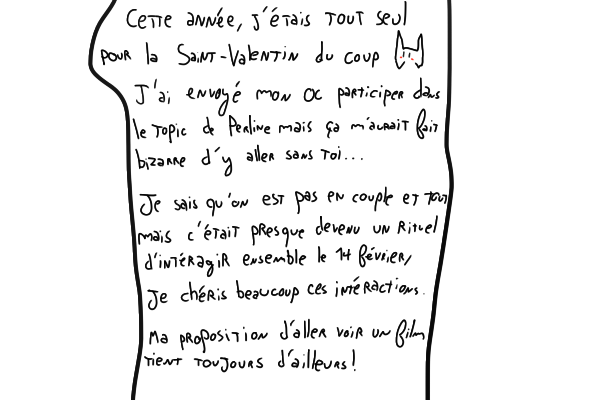 Cette année, j'étais tout seul
pour la Saint-Valentin du coup
J'ai envoyé mon OC participer dans
le topic de Perline mais ça m'aurait fait
bizarre d'y aller sans toi...
Je sais qu'on est pas en couple et tout
mais c'était presque devenu un rituel
d'intéragir ensemble le 14 février,
je chéris beaucoup ces intéractions.
Ma proposition d'aller voir un film
tient toujours d'ailleurs!